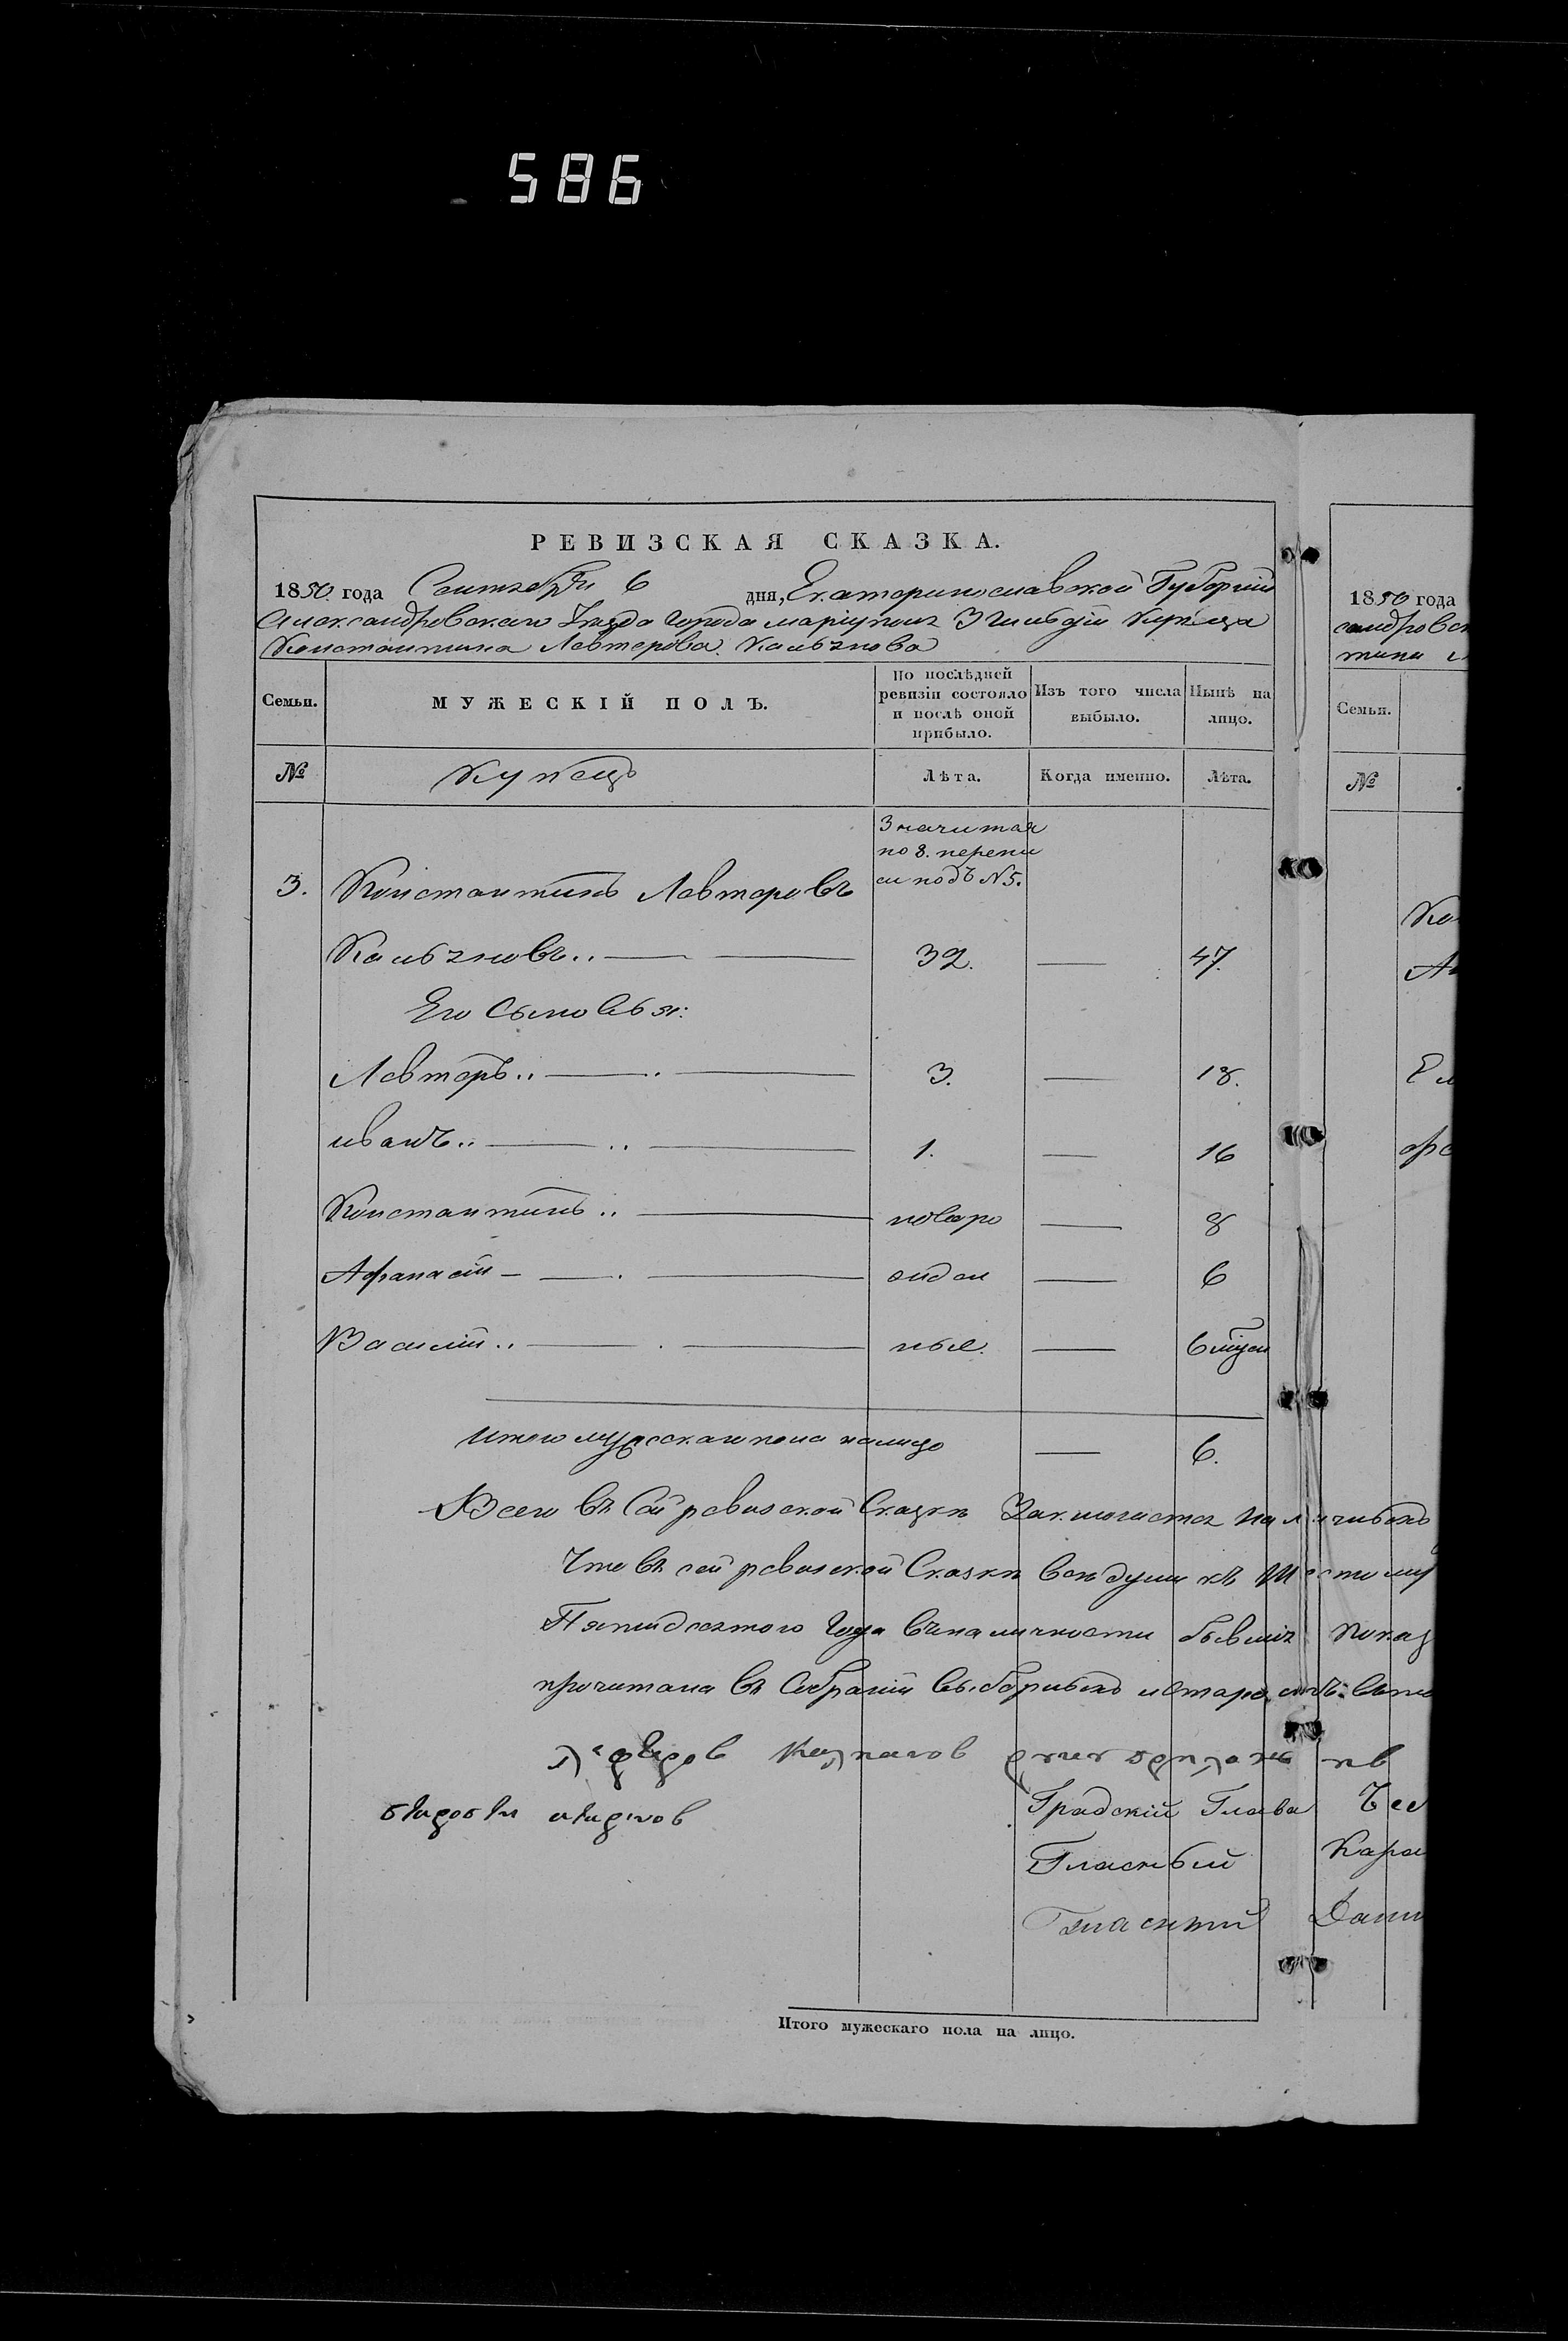 586
РЕВИЗСКАЯ СКАЗКА.
1850 года Сентября 6 дня, Екатеринославской Губернии
Александровского Уезда города Мариуполя 3 Гильдіи Купца
Константина Левтерова Кальянова
Семьи.
МУЖЕСКІЙ ПОЛЪ.
По послѣдней
ревизіи состояло
и послѣ оной
прибыло.
Изъ того числа
выбыло.
Нынѣ на
лицо.
№
Купецъ
Лѣта.
Когда именно.
Лѣта.
Значится
по 8. перепи
си подъ N5.
3. Константинъ Левтеровъ
Кальяновъ.. 32. 47.
Его Сыновья:
Левтеръ.. 3. 18.
иванъ.. 1. 16
Константинъ.. новоро 8
Афанасій 6
Василій.. ные. 6
итого мужескаго пола налицо 6.
Всего въ Сей ревизской Сказкѣ Заключается наличныхъ
Что въ сей ревизской Сказкѣ всѣ души къ Шестому
Пятидесятого Года въ наличности бывшія показ
прочитана въ Собраніи выборныхъ
Градскій Глава
Гласный Кара
Гласный
Итого мужескаго пола на лицо.
1850 года
сандровск
тина
Семьи.
№
Ко